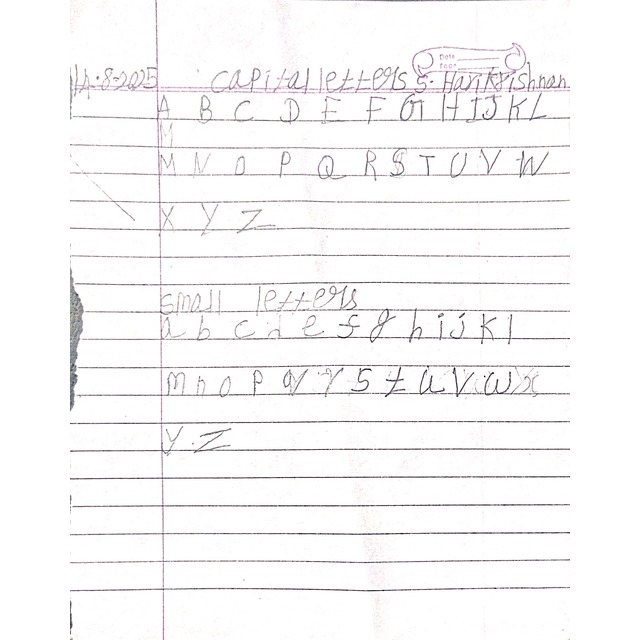 14.8.2025 capital letters S. Harikrishnan
Date
Page
A B C D E F G H I J K L
M
M N O P Q R S T U V W
X Y Z
small letters
a b c d e f g h i j k l
m n o p q r s t u v w x
y z